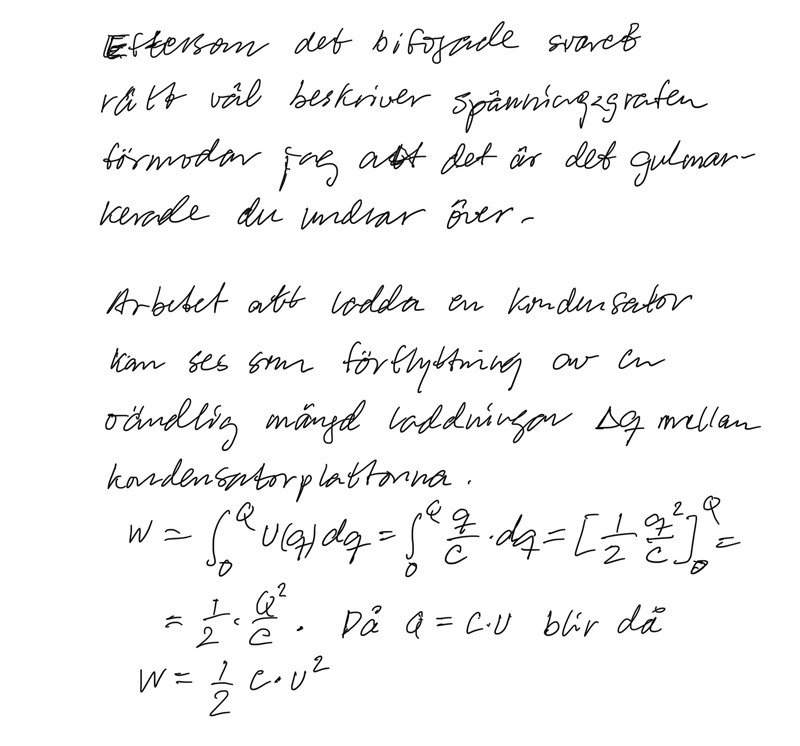 Eftersom det bifogade svaret
rätt väl beskriver spänningsgrafen
förmodar jag att det är det gulmar-
kerade du undrar över.
Arbetet att ladda en kondensator
kan ses som förflyttning av en
oändlig mängd laddningar Δq mellan
kondensatorplattorna.
W = ∫₀^Q U(q) dq = ∫₀^Q q/C · dq = [1/2 q²/C]₀^Q =
= 1/2 · Q²/C . Då Q = C·U blir då
W = 1/2 C·U²